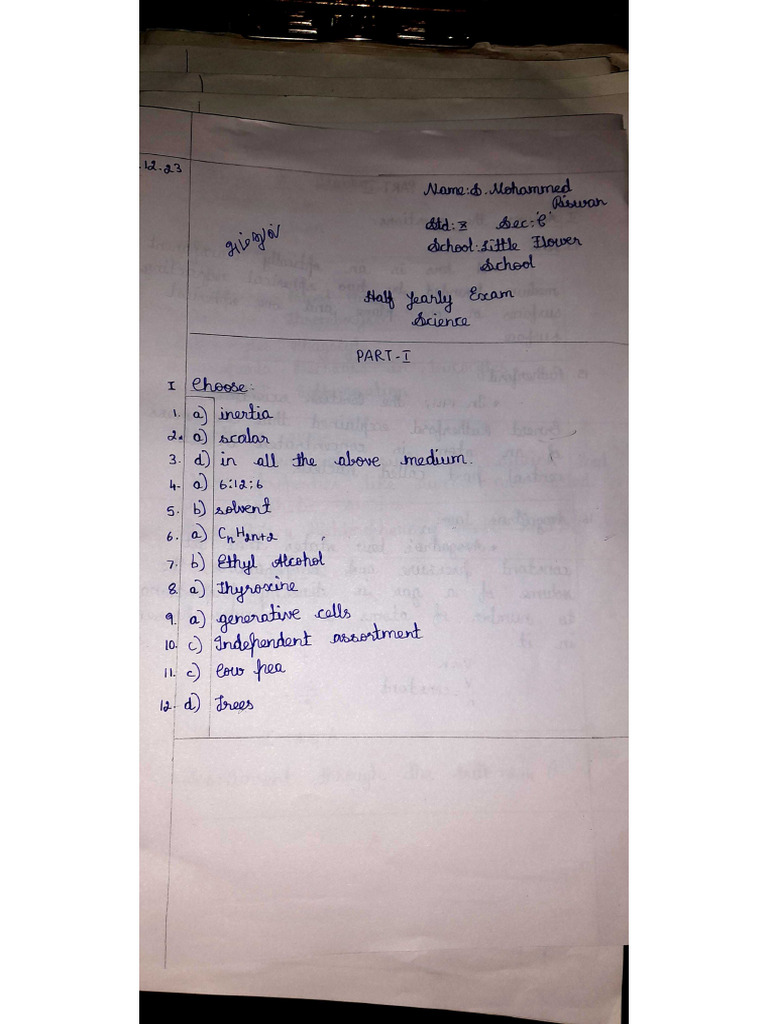 .12.23
Name: S. Mohammed
Riswan
Std: X Sec: 'C'
School: Little Flower
School
Half Yearly Exam
Science
PART-I
I Choose:
1. a) inertia
2. a) scalar
3. d) in all the above medium.
4. a) 6:12:6
5. b) solvent
6. a) CnH2n+2
7. b) Ethyl Alcohol
8. a) Thyroxine
9. a) generative cells
10. c) Independent assortment
11. c) Cow pea
12. d) Trees